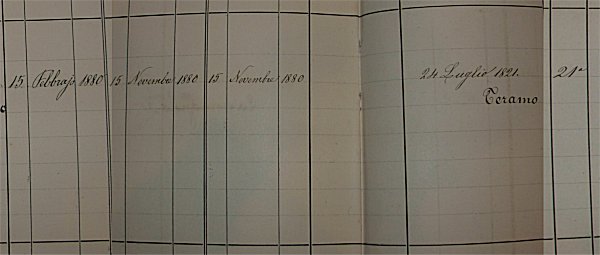 15 Febbrajo 1880 15 Novembre 1880 15 Novembre 1880 24 Luglio 1821. 21ª
Teramo